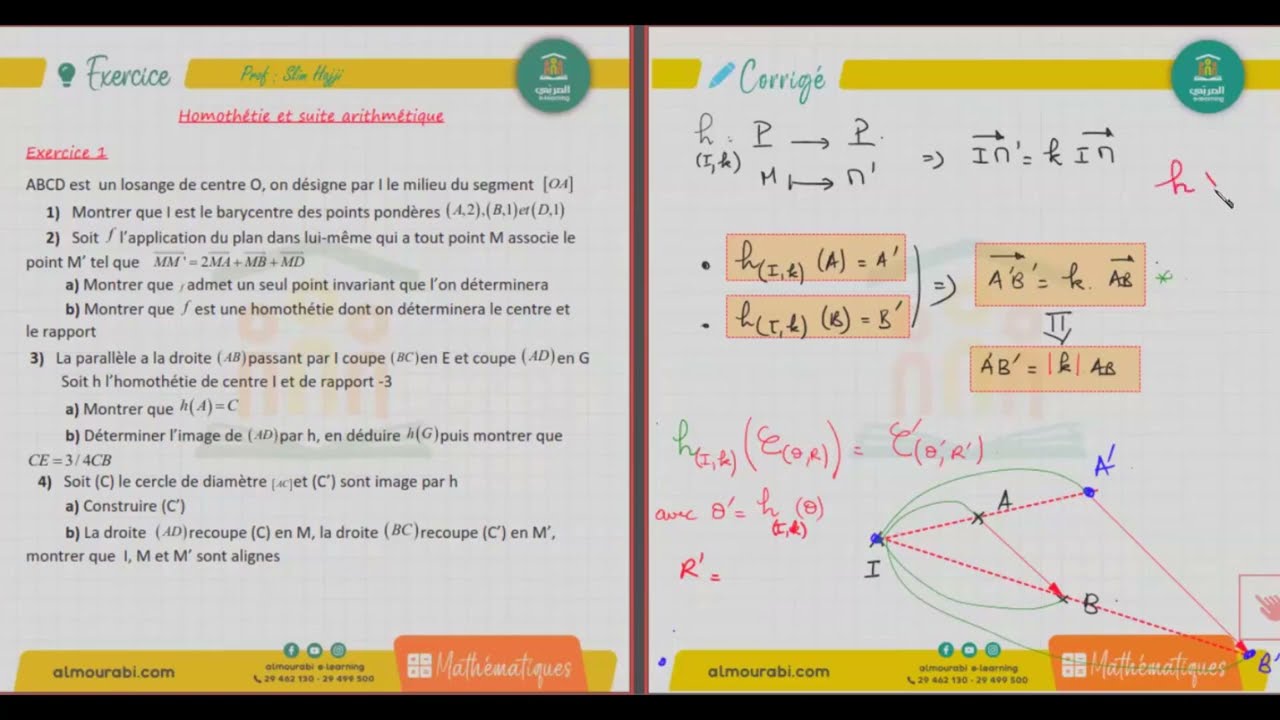 Exercice
Prof : Slim Hajji
المربّي
e-learning
Homothétie et suite arithmétique
Exercice 1
ABCD est un losange de centre O, on désigne par I le milieu du segment [OA]
1) Montrer que I est le barycentre des points pondères (A,2),(B,1)et(D,1)
2) Soit f l'application du plan dans lui-même qui a tout point M associe le
point M' tel que MM' = 2MA + MB + MD
a) Montrer que f admet un seul point invariant que l'on déterminera
b) Montrer que f est une homothétie dont on déterminera le centre et
le rapport
3) La parallèle a la droite (AB) passant par I coupe (BC) en E et coupe (AD) en G
Soit h l'homothétie de centre I et de rapport -3
a) Montrer que h(A)=C
b) Déterminer l'image de (AD) par h, en déduire h(G) puis montrer que
CE = 3/4CB
4) Soit (C) le cercle de diamètre [AC] et (C') sont image par h
a) Construire (C')
b) La droite (AD) recoupe (C) en M, la droite (BC) recoupe (C') en M',
montrer que I, M et M' sont alignes
almourabi.com
almourabi e-learning
29 462 130 - 29 499 500
Mathématiques
Corrigé
المربّي
e-learning
h(I,k) : P → P
M ↦ M' => IM' = k IM
h
• h(I,k) (A) = A'
• h(I,k) (B) = B'
=> A'B' = k. AB *
⇓
A'B' = |k| AB
h(I,k) (C(O,R)) = C'(O',R')
avec O' = h(I,k) (O)
R' =
A'
A
I
B
B'
almourabi.com
almourabi e-learning
29 462 130 - 29 499 500
Mathématiques